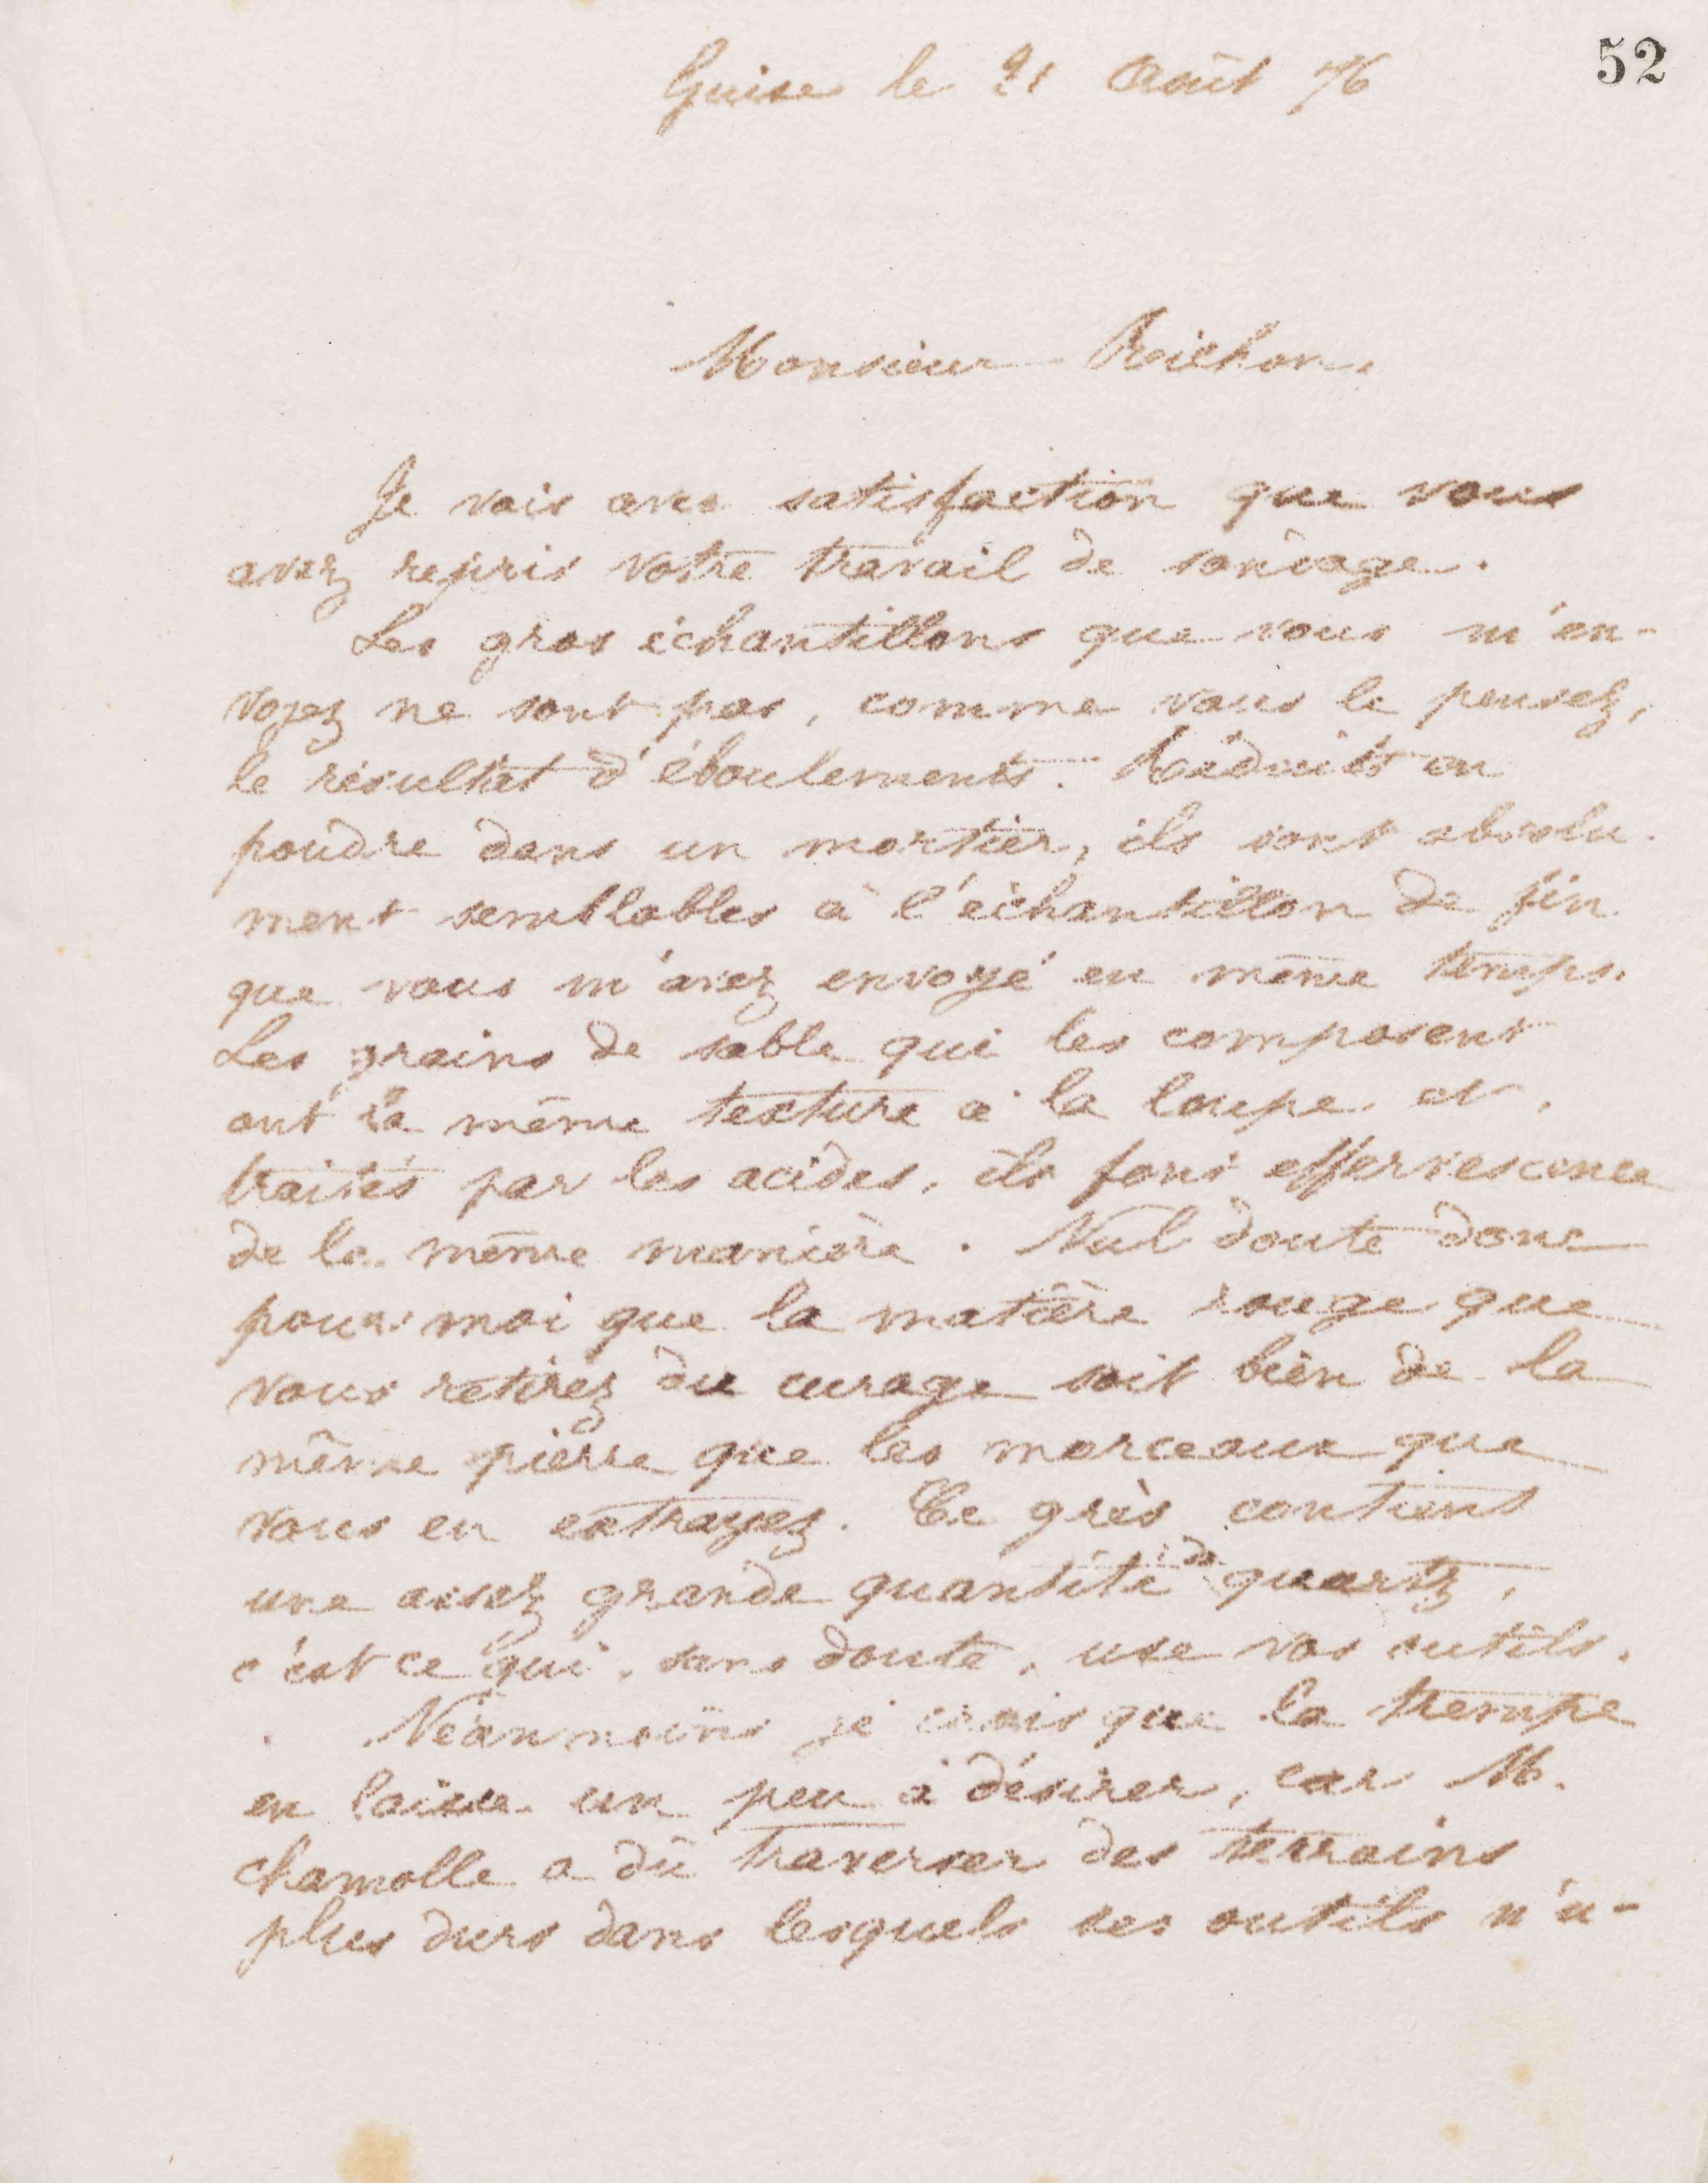 52
Guise le 21 Août 76
Monsieur Roichon.
Je vois avec satisfaction que vous
avez repris votre travail de sondage.
Les gros échantillons que vous m'en-
voyez ne sont pas, comme vous le pensez,
le résultat d'éboulements. Réduits en
poudre dans un mortier, ils sont absolu-
ment semblables à l'échantillon de fin
que vous m'avez envoyé en même temps.
Les grains de sable qui les composent
ont la même texture à la loupe et,
traités par les acides, ils font effervescence
de la même manière. Nul doute donc
pour moi que la matière rouge que
vous retirez du curage soit bien de la
même pierre que les morceaux que
vous en extrayez. Ce grès contient
une assez grande quantité de quartz,
c'est ce qui, sans doute, use vos outils.
Néanmoins je crois que la trempe
en laisse un peu à désirer, car M.
Chamolle a dû traverser des terrains
plus durs dans lesquels ses outils n'u-